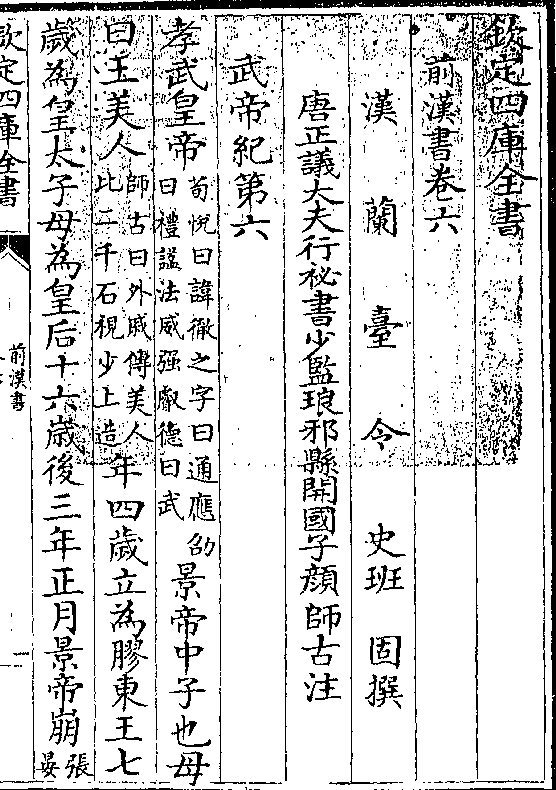 欽定四庫全書
前漢書卷六
漢蘭臺令史班固撰
唐正議大夫行祕書少監琅邪縣開國子顏師古注
武帝紀第六
孝武皇帝荀悅曰諱徹之字曰通應劭曰禮諡法威强叡德曰武景帝中子也母
曰王美人師古曰外戚傳美人比二千石視少上造年四歲立為膠東王七
歲為皇太子母為皇后十六歲後三年正月景帝崩張晏
欽定四庫全書
前漢書